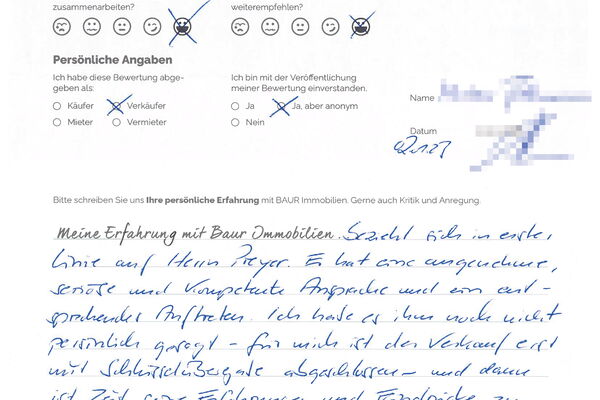 zusammenarbeiten?
weiterempfehlen?
Persönliche Angaben
Ich habe diese Bewertung abge-
geben als:
Ich bin mit der Veröffentlichung
meiner Bewertung einverstanden.
Käufer
Verkäufer
Ja
Ja, aber anonym
Name
Mieter
Vermieter
Nein
Datum
Bitte schreiben Sie uns Ihre persönliche Erfahrung mit BAUR Immobilien. Gerne auch Kritik und Anregung.
Meine Erfahrung mit Baur Immobilien. Bezieht sich in erster
Linie auf Herrn Preyer. Er hat eine angenehme,
seriöse und kompetente Ansprache und ein ent-
sprechendes Auftreten. Ich habe es ihm noch nicht
persönlich gesagt - für mich ist der Verkauf erst
mit Schlüsselübergabe abgeschlossen - und dann
ist Zeit seine Erfahrungen und Eindrücke zu